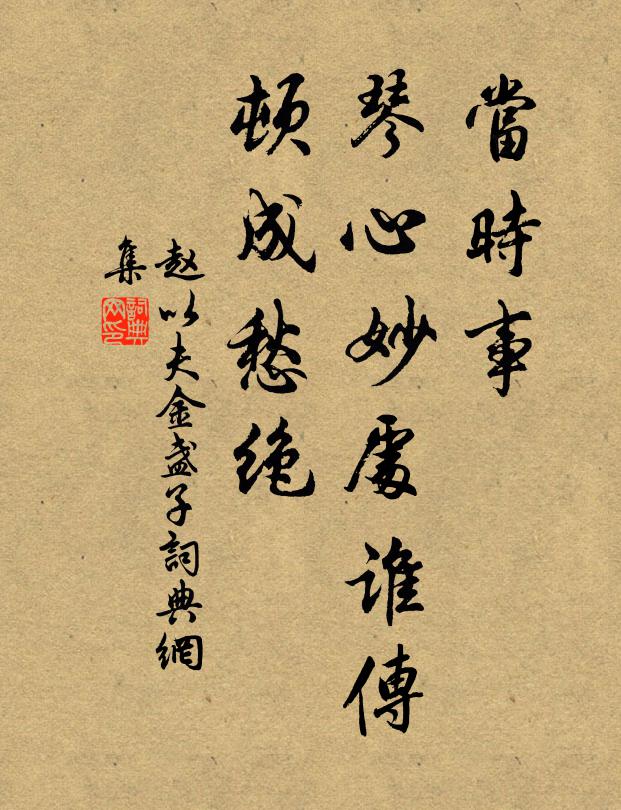 當時事
琴心妙處誰傳
頓成愁絶
赵以夫金盏子詞典網
集
詞典網印